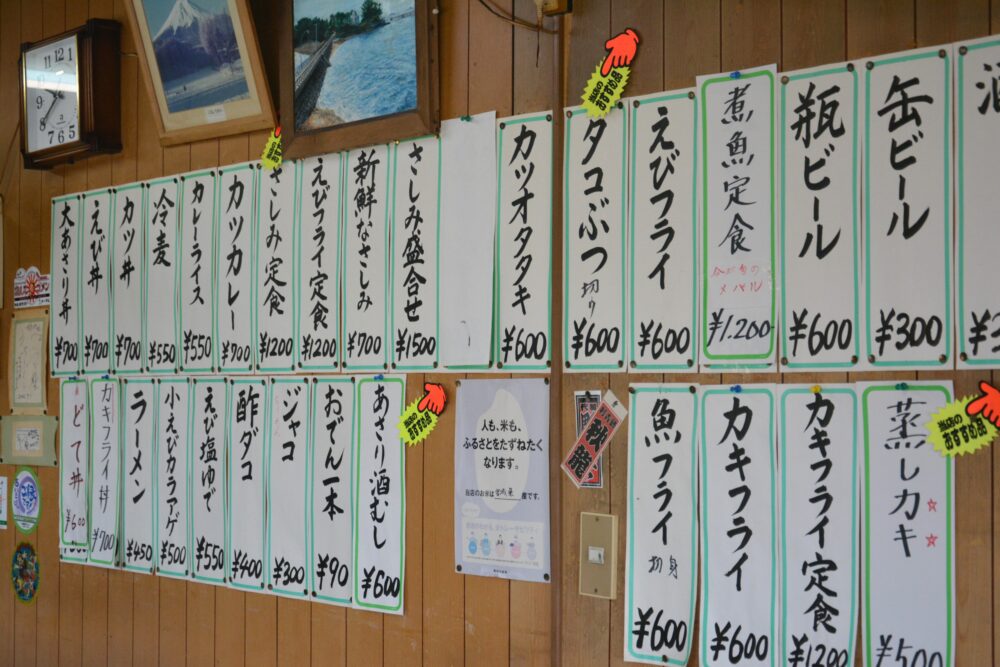 大あさり丼 ¥700
えび丼 ¥700
カツ丼 ¥700
冷麦 ¥550
カレーライス ¥550
カツカレー ¥900
さしみ定食 ¥1200
えびフライ定食 ¥1200
新鮮なさしみ ¥700
さしみ盛合せ ¥1500
カツオタタキ ¥600
タコぶつ切り ¥600
えびフライ ¥600
煮魚定食
メバル
¥1.200
瓶ビール ¥600
缶ビール ¥300
当店の
おすすめ品
どて丼 ¥600
カキフライ丼 ¥700
ラーメン ¥450
小えびカラアゲ ¥500
えび塩ゆで ¥550
酢ダコ ¥400
ジャコ ¥300
おでん一本 ¥90
あさり酒むし ¥600
当店の
おすすめ品
人も、米も、
ふるさとをたずねたく
なります。
当店のお米は宮城県産です。
魚フライ 切身 ¥600
カキフライ ¥600
カキフライ定食 ¥1200
蒸しカキ ¥500
当店の
おすすめ品